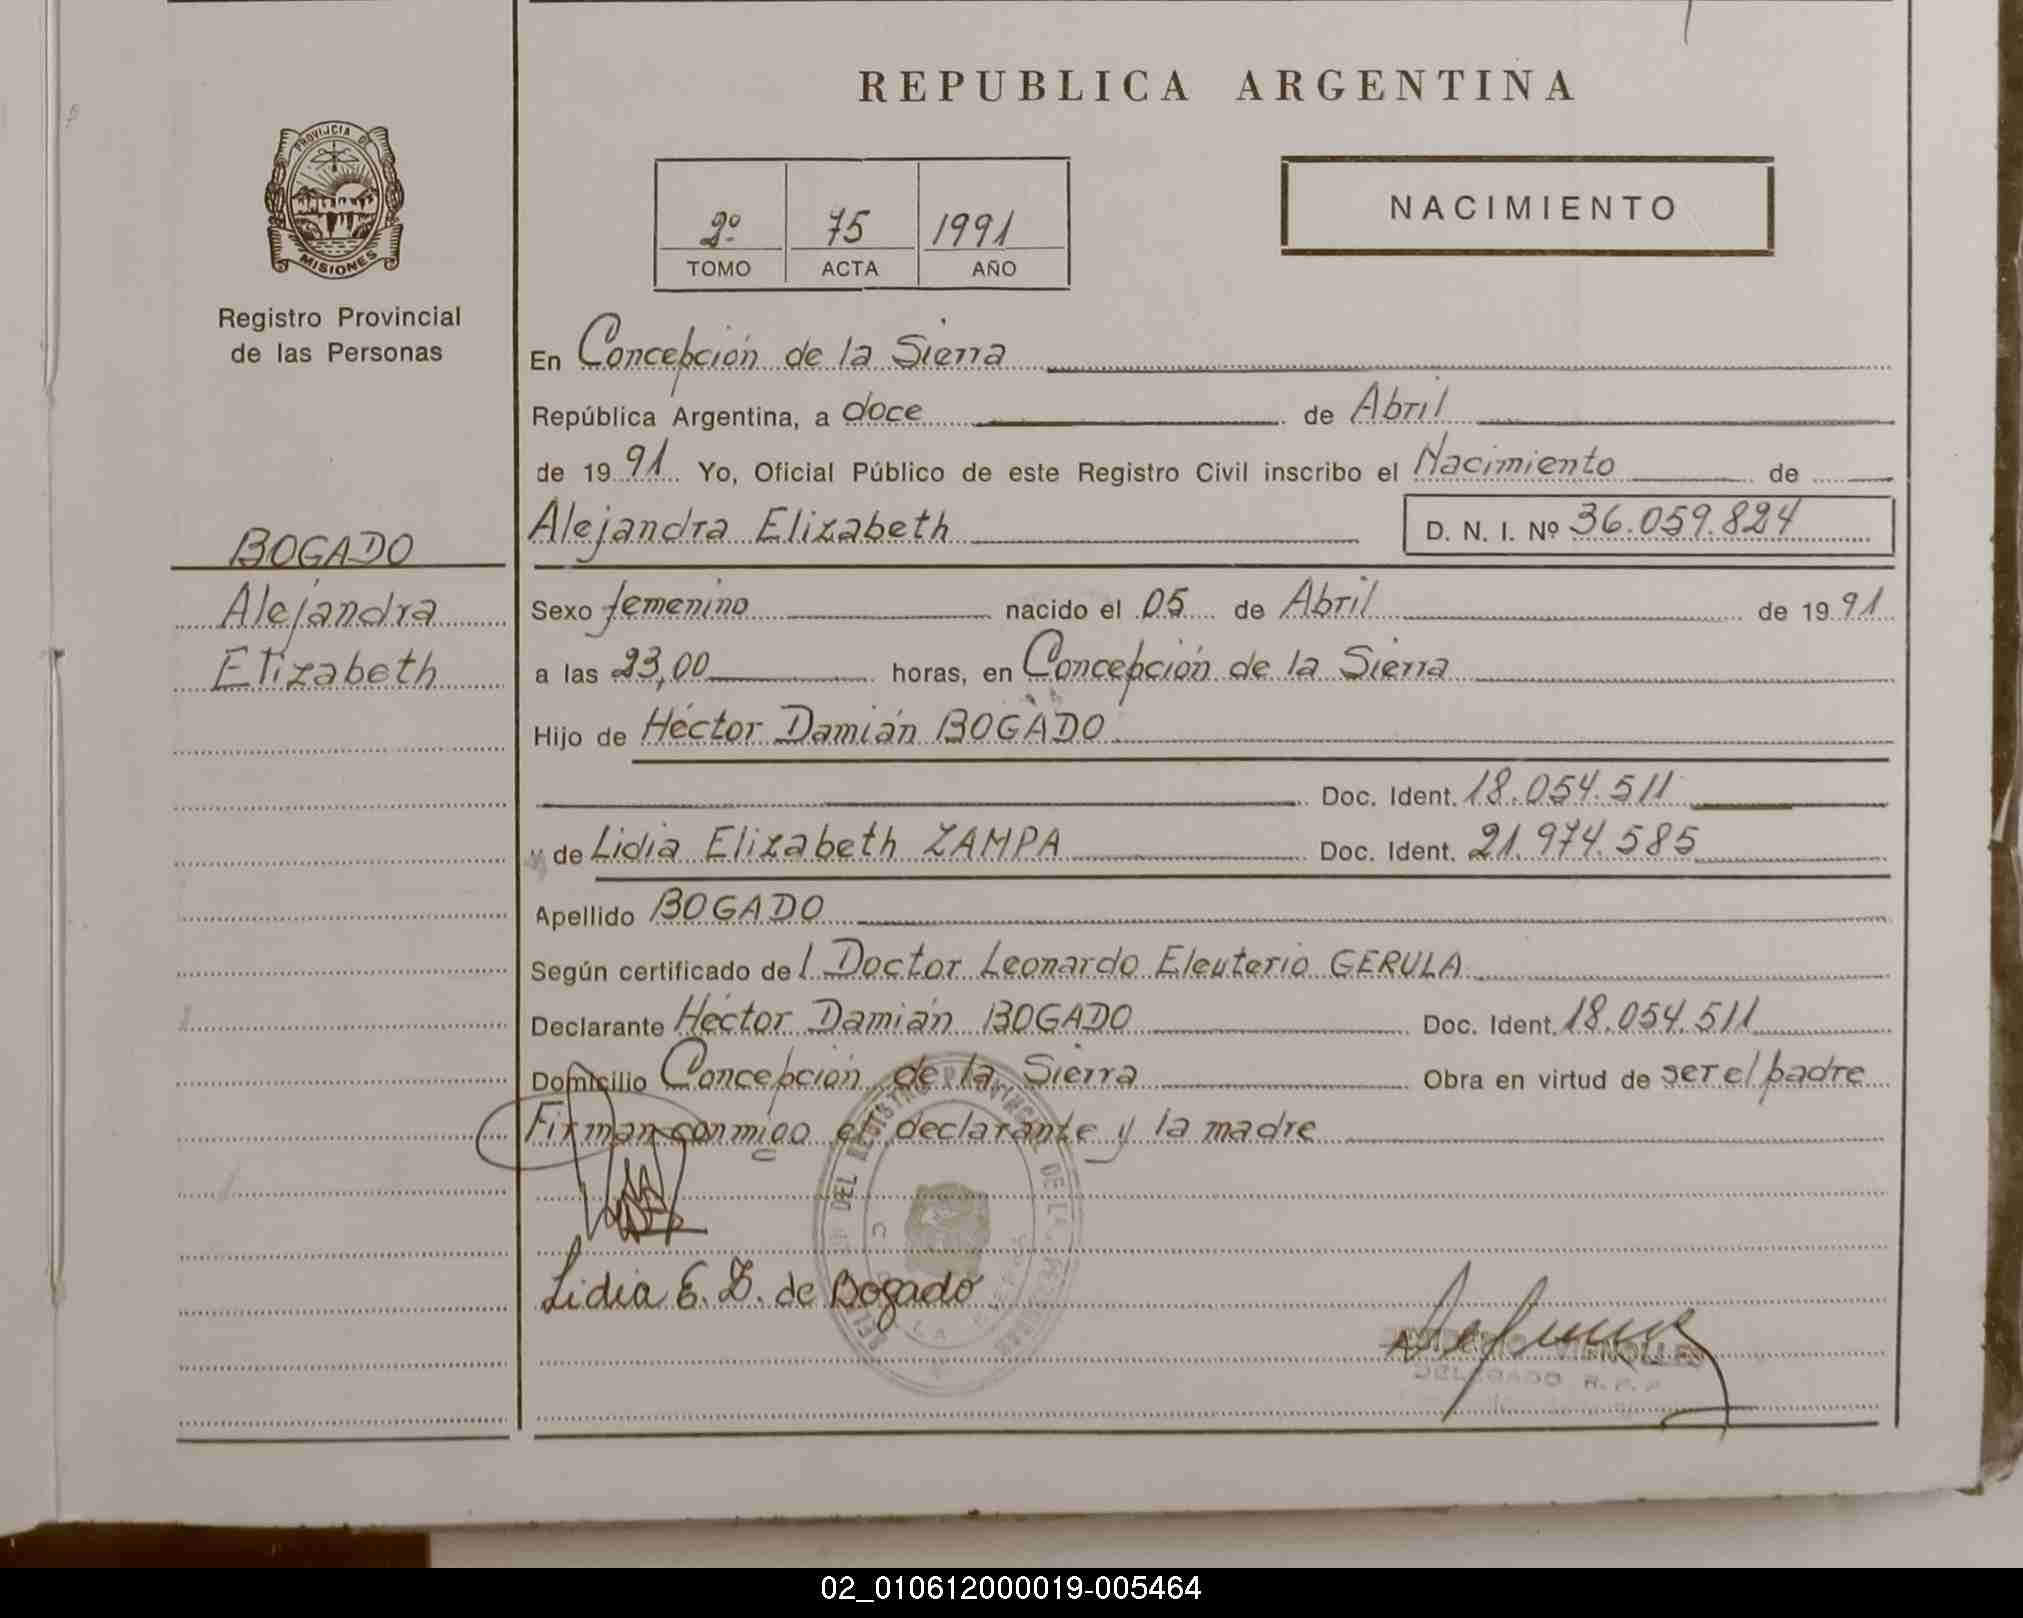 REPUBLICA ARGENTINA
PROVINCIA DE
MISIONES
Registro Provincial
de las Personas
2º 75 1991
TOMO ACTA AÑO
NACIMIENTO
En Concepción de la Sierra
República Argentina, a doce de Abril
de 1991 Yo, Oficial Público de este Registro Civil inscribo el Nacimiento de
BOGADO
Alejandra
Elizabeth
Alejandra Elizabeth D. N. I. Nº 36.059.824
Sexo femenino nacido el 05 de Abril de 1991
a las 23,00 horas, en Concepción de la Sierra
Hijo de Héctor Damián BOGADO
Doc. Ident. 18.054.511
y de Lidia Elizabeth ZAMPA Doc. Ident. 21.974.585
Apellido BOGADO
Según certificado del Doctor Leonardo Eleuterio GERULA
Declarante Héctor Damián BOGADO Doc. Ident. 18.054.511
Domicilio Concepción de la Sierra Obra en virtud de ser el padre
Firman conmigo el declarante y la madre
Lidia E. Z. de Bogado
DELEGADO R. P. P.
02_010612000019-005464